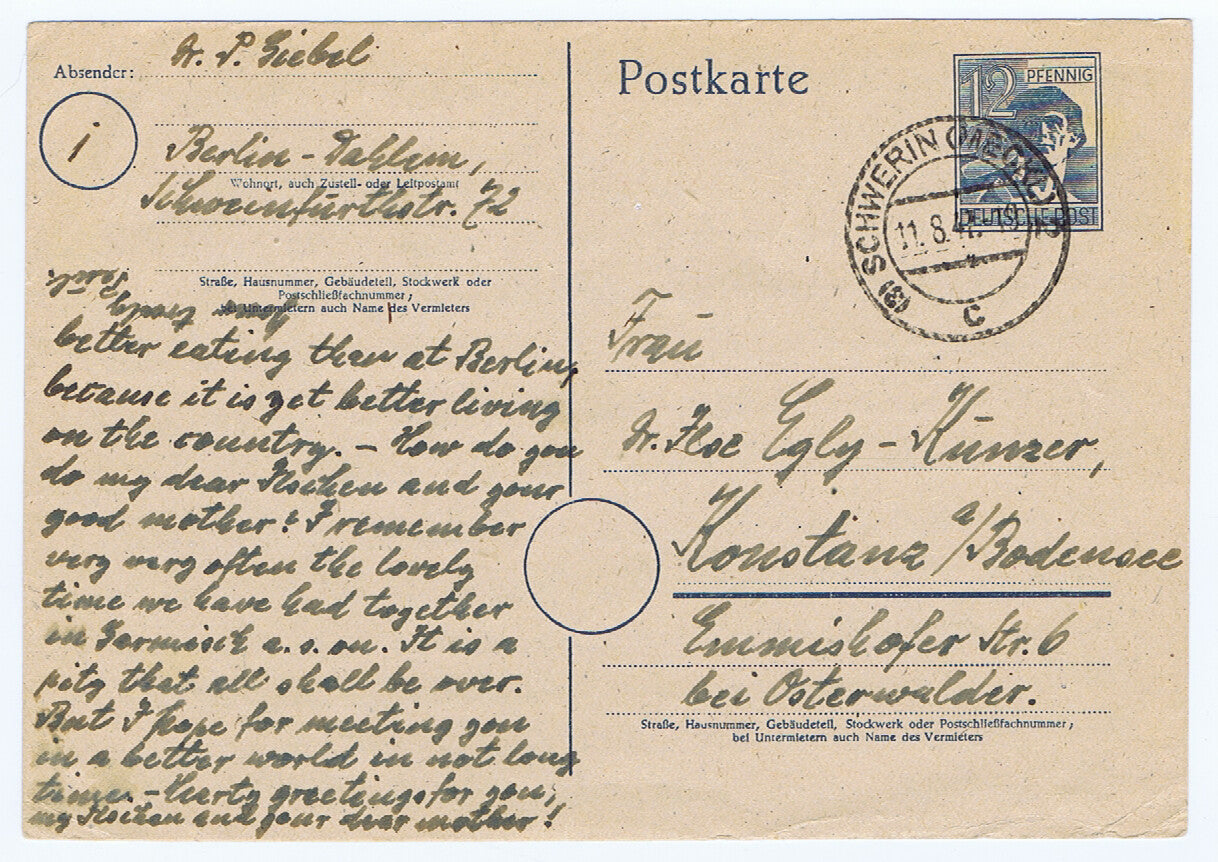 Absender:
Dr. P. Giebel
Berlin-Dahlem,
Wohnort, auch Zustell- oder Leitpostamt
Schweinfurthstr. 72
Straße, Hausnummer, Gebäudeteil, Stockwerk oder
Postschließfachnummer;
bei Untermietern auch Name des Vermieters
better eating than at Berlin,
because it is yet better living
on the country. - How do you
do my dear Ilschen and your
good mother? I remember
very very often the lovely
time we have had together
in Garmisch a. s. on. It is a
pity that all shall be over.
But I hope for meeting you
in a better world in not long
time. - Harty greetings for you,
my Ilschen and your dear mother!
Postkarte
12 PFENNIG
DEUTSCHE POST
SCHWERIN (MECKL)
11.8.47
c
Frau
Dr. Ilse Egly-Künzer,
Konstanz a/Bodensee
Emmishofer Str. 6
bei Osterwalder.
Straße, Hausnummer, Gebäudeteil, Stockwerk oder Postschließfachnummer;
bei Untermietern auch Name des Vermieters